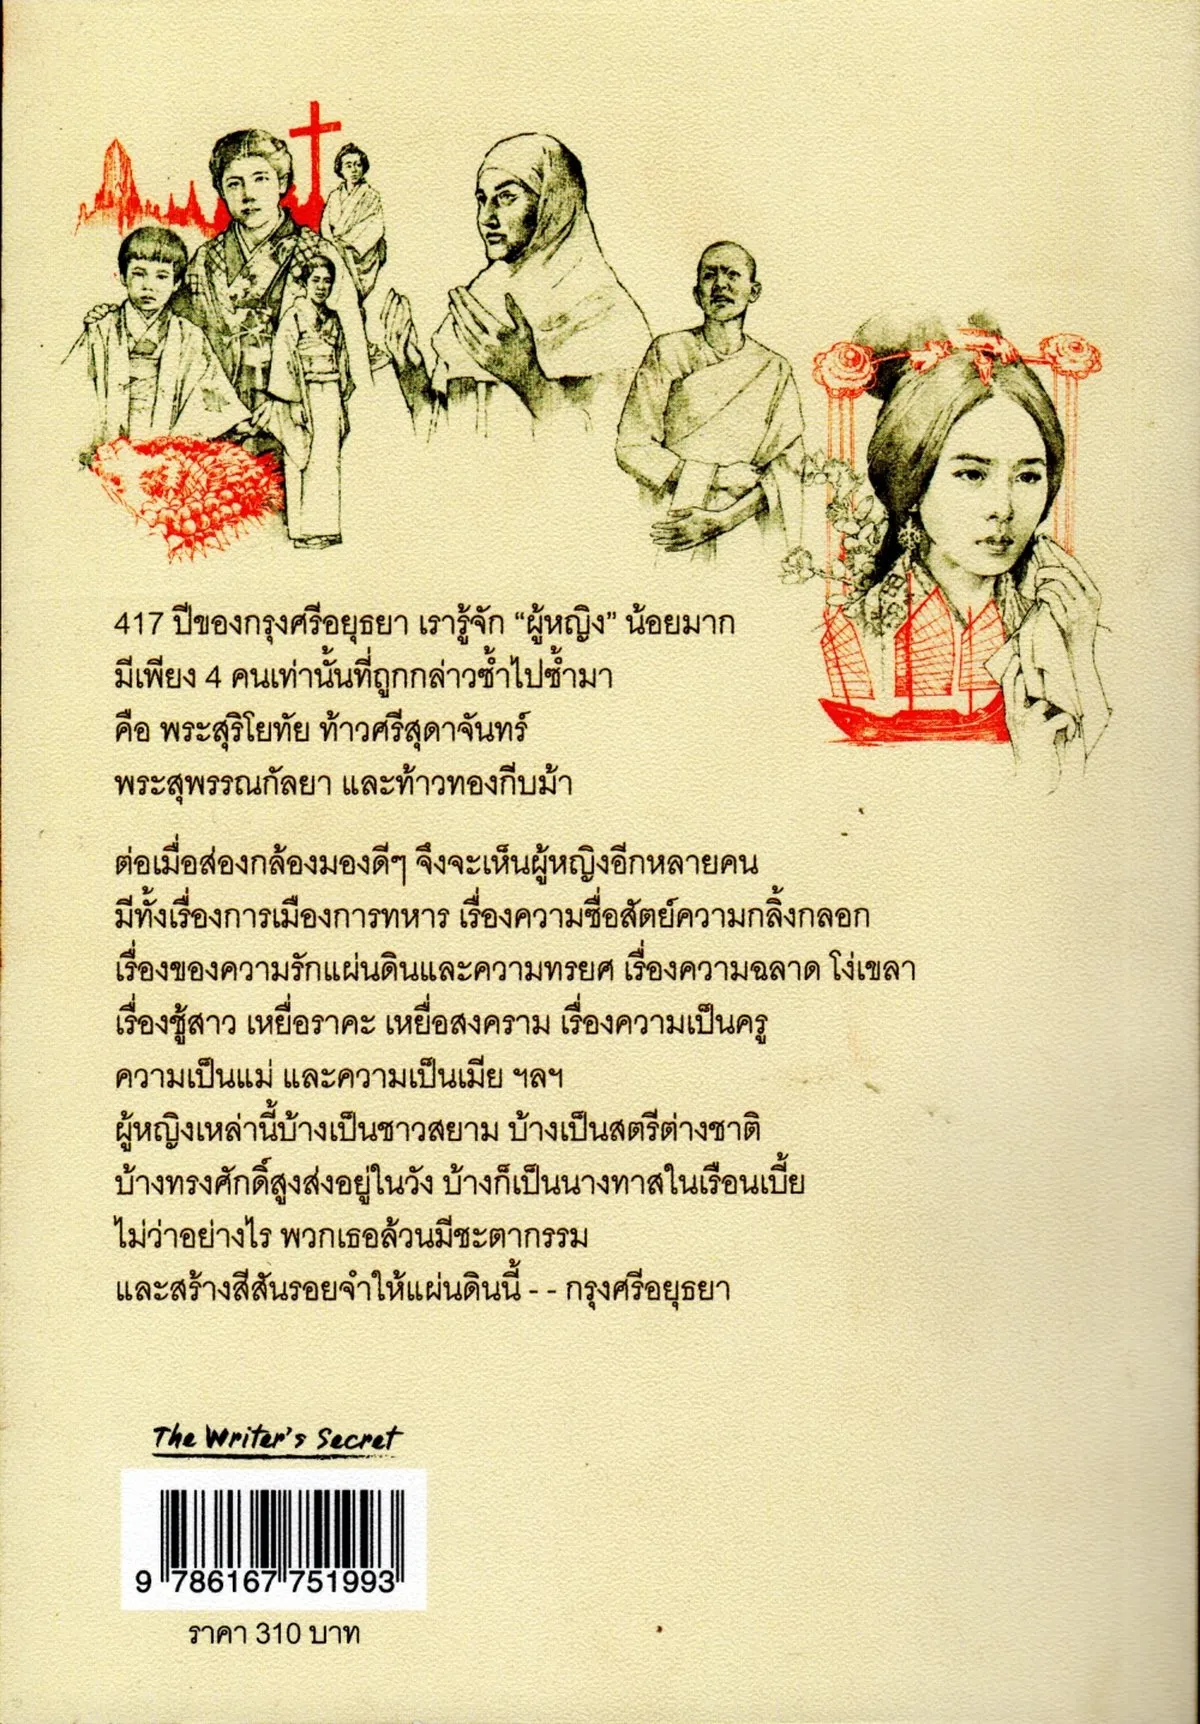 417 ปีของกรุงศรีอยุธยา เรารู้จัก “ผู้หญิง” น้อยมาก
มีเพียง 4 คนเท่านั้นที่ถูกกล่าวซ้ำไปซ้ำมา
คือ พระสุริโยทัย ท้าวศรีสุดาจันทร์
พระสุพรรณกัลยา และท้าวทองกีบม้า
ต่อเมื่อส่องกล้องมองดีๆ จึงจะเห็นผู้หญิงอีกหลายคน
มีทั้งเรื่องการเมืองการทหาร เรื่องความซื่อสัตย์ความกลิ้งกลอก
เรื่องของความรักแผ่นดินและความทรยศ เรื่องความฉลาด โง่เขลา
เรื่องชู้สาว เหยื่อราคะ เหยื่อสงคราม เรื่องความเป็นครู
ความเป็นแม่ และความเป็นเมีย ฯลฯ
ผู้หญิงเหล่านี้บ้างเป็นชาวสยาม บ้างเป็นสตรีต่างชาติ
บ้างทรงศักดิ์สูงส่งอยู่ในวัง บ้างก็เป็นนางทาสในเรือนเบี้ย
ไม่ว่าอย่างไร พวกเธอล้วนมีชะตากรรม
และสร้างสีสันรอยจำให้แผ่นดินนี้ - - กรุงศรีอยุธยา
The Writer's Secret
9 786167 751993
ราคา 310 บาท